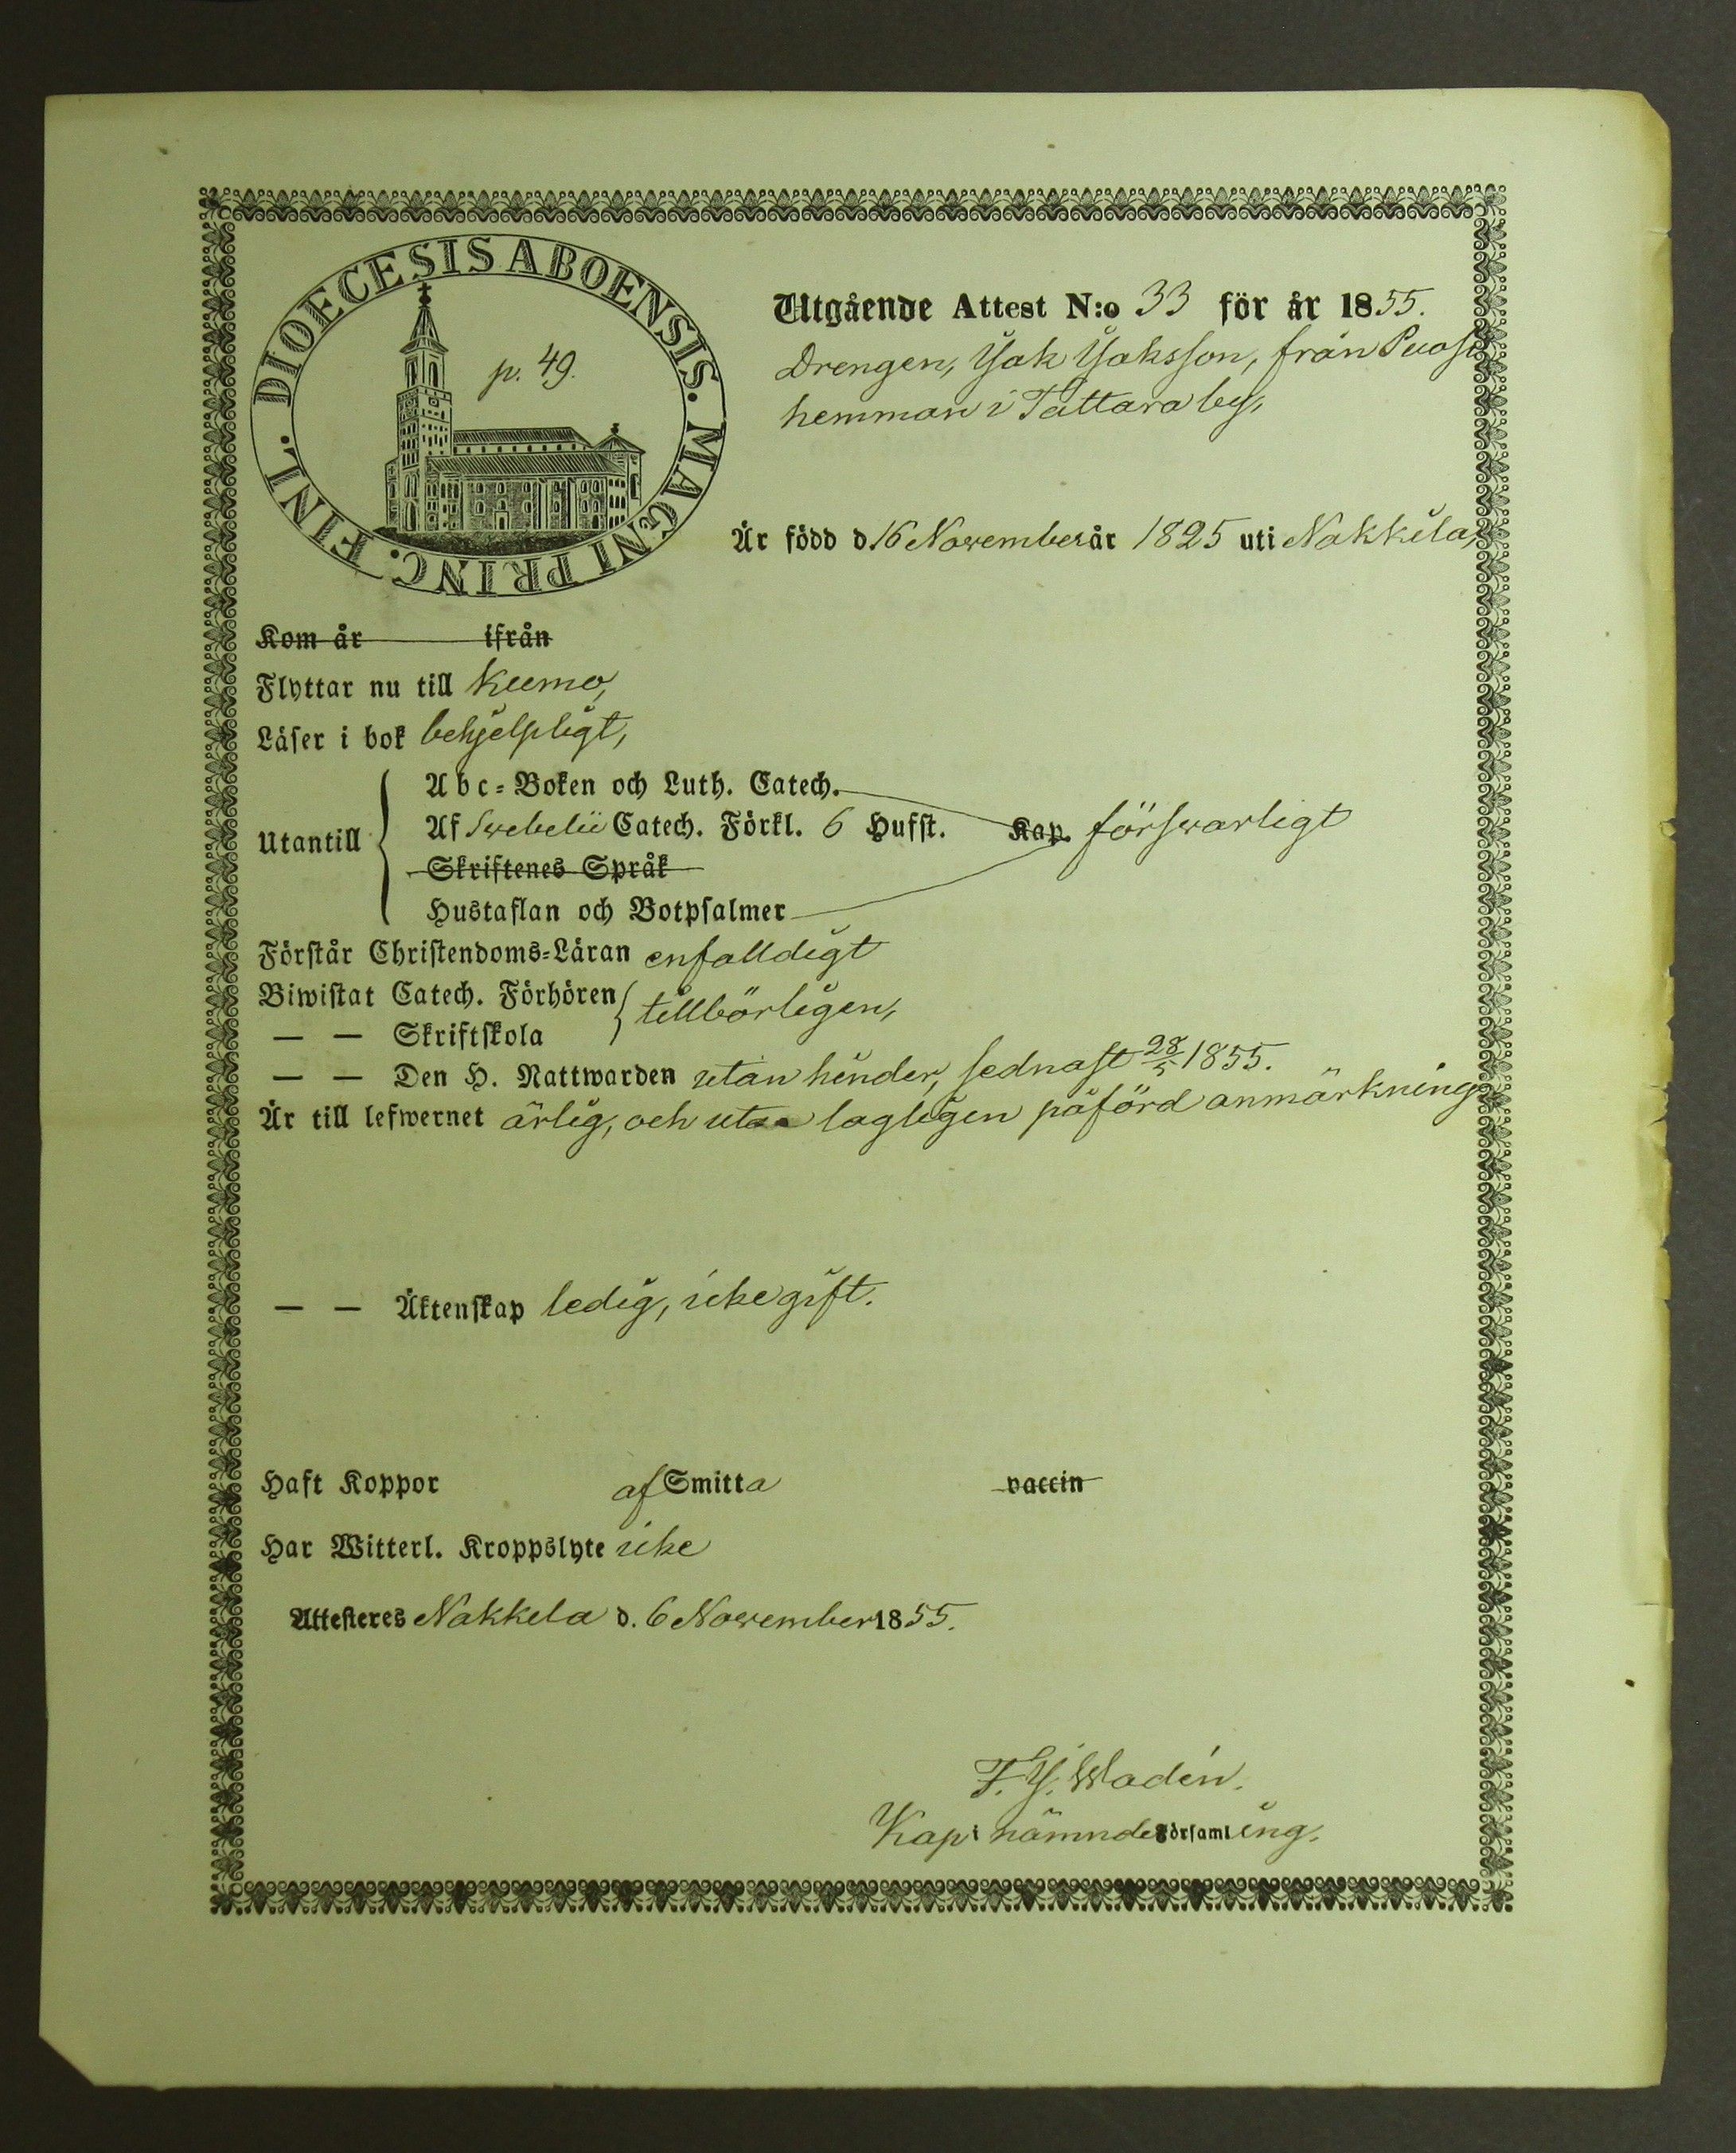 DIOECESIS ABOENSIS. MAGNI PRINC. FINL.
p. 49.
Utgående Attest N:o 33 för år 1855.
Drengen, Isak Isaksson, från
hemman i Tattara by,
Är född d. 16 November år 1825 uti Nakkila,
Kom år ifrån
Flyttar nu till Kumo,
Läser i bok behjelpligt,
Utantill
Abc-Boken och Luth. Catech.
Af Swebelii Catech. Förkl. 6 Hufst. Kap. förswarligt
Skriftenes Språk
Hustaflan och Botpsalmer
Förstår Christendoms-Läran enfalldigt
Biwistat Catech. Förhören tillbörligen,
— — Skriftskola
— — Den H. Nattwarden utan hinder, sednast 28/5 1855.
Är till lefwernet ärlig, och utan lagligen påförd anmärkning
— — Äktenskap ledig, icke gift.
Haft Koppor af Smitta vaccin
Har Witterl. Kroppslyte icke
Attesteres Nakkila d. 6 November 1855.
Kap i nämnde Församling.